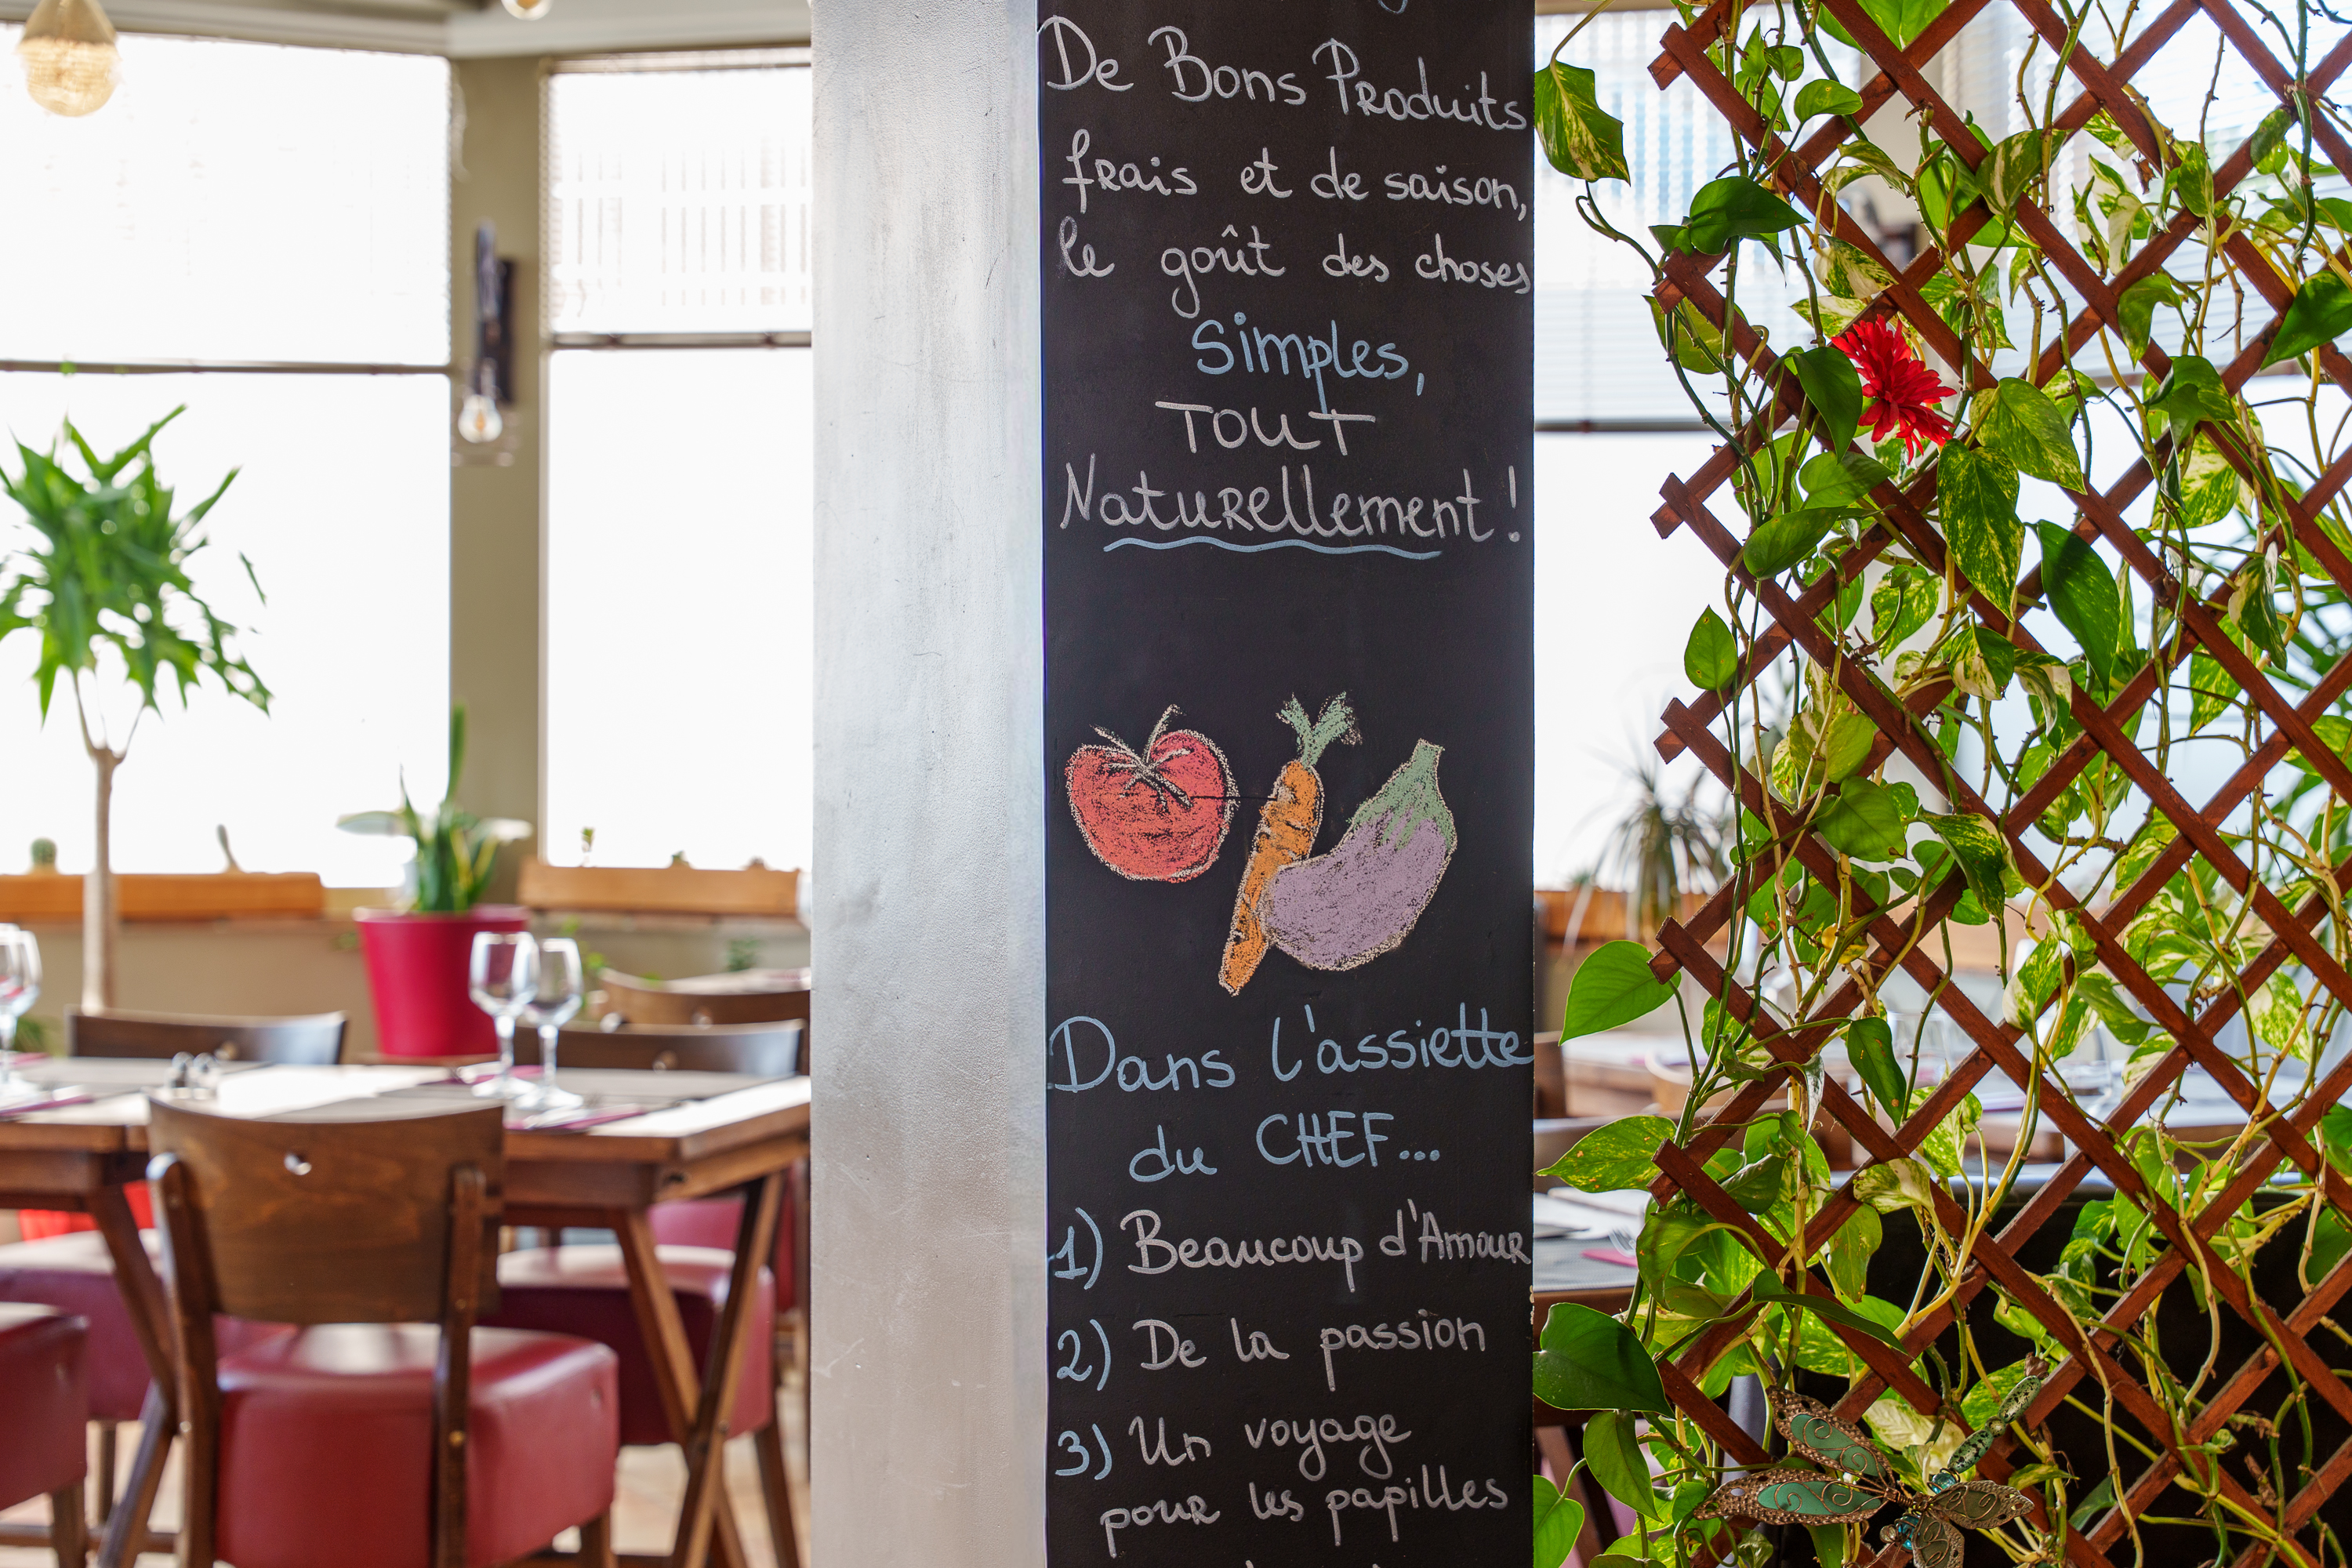 De Bons Produits
frais et de saison,
le goût des choses
Simples,
TOUT
Naturellement !
Dans l'assiette
du CHEF...
1) Beaucoup d'Amour
2) De la passion
3) Un voyage
pour les papilles